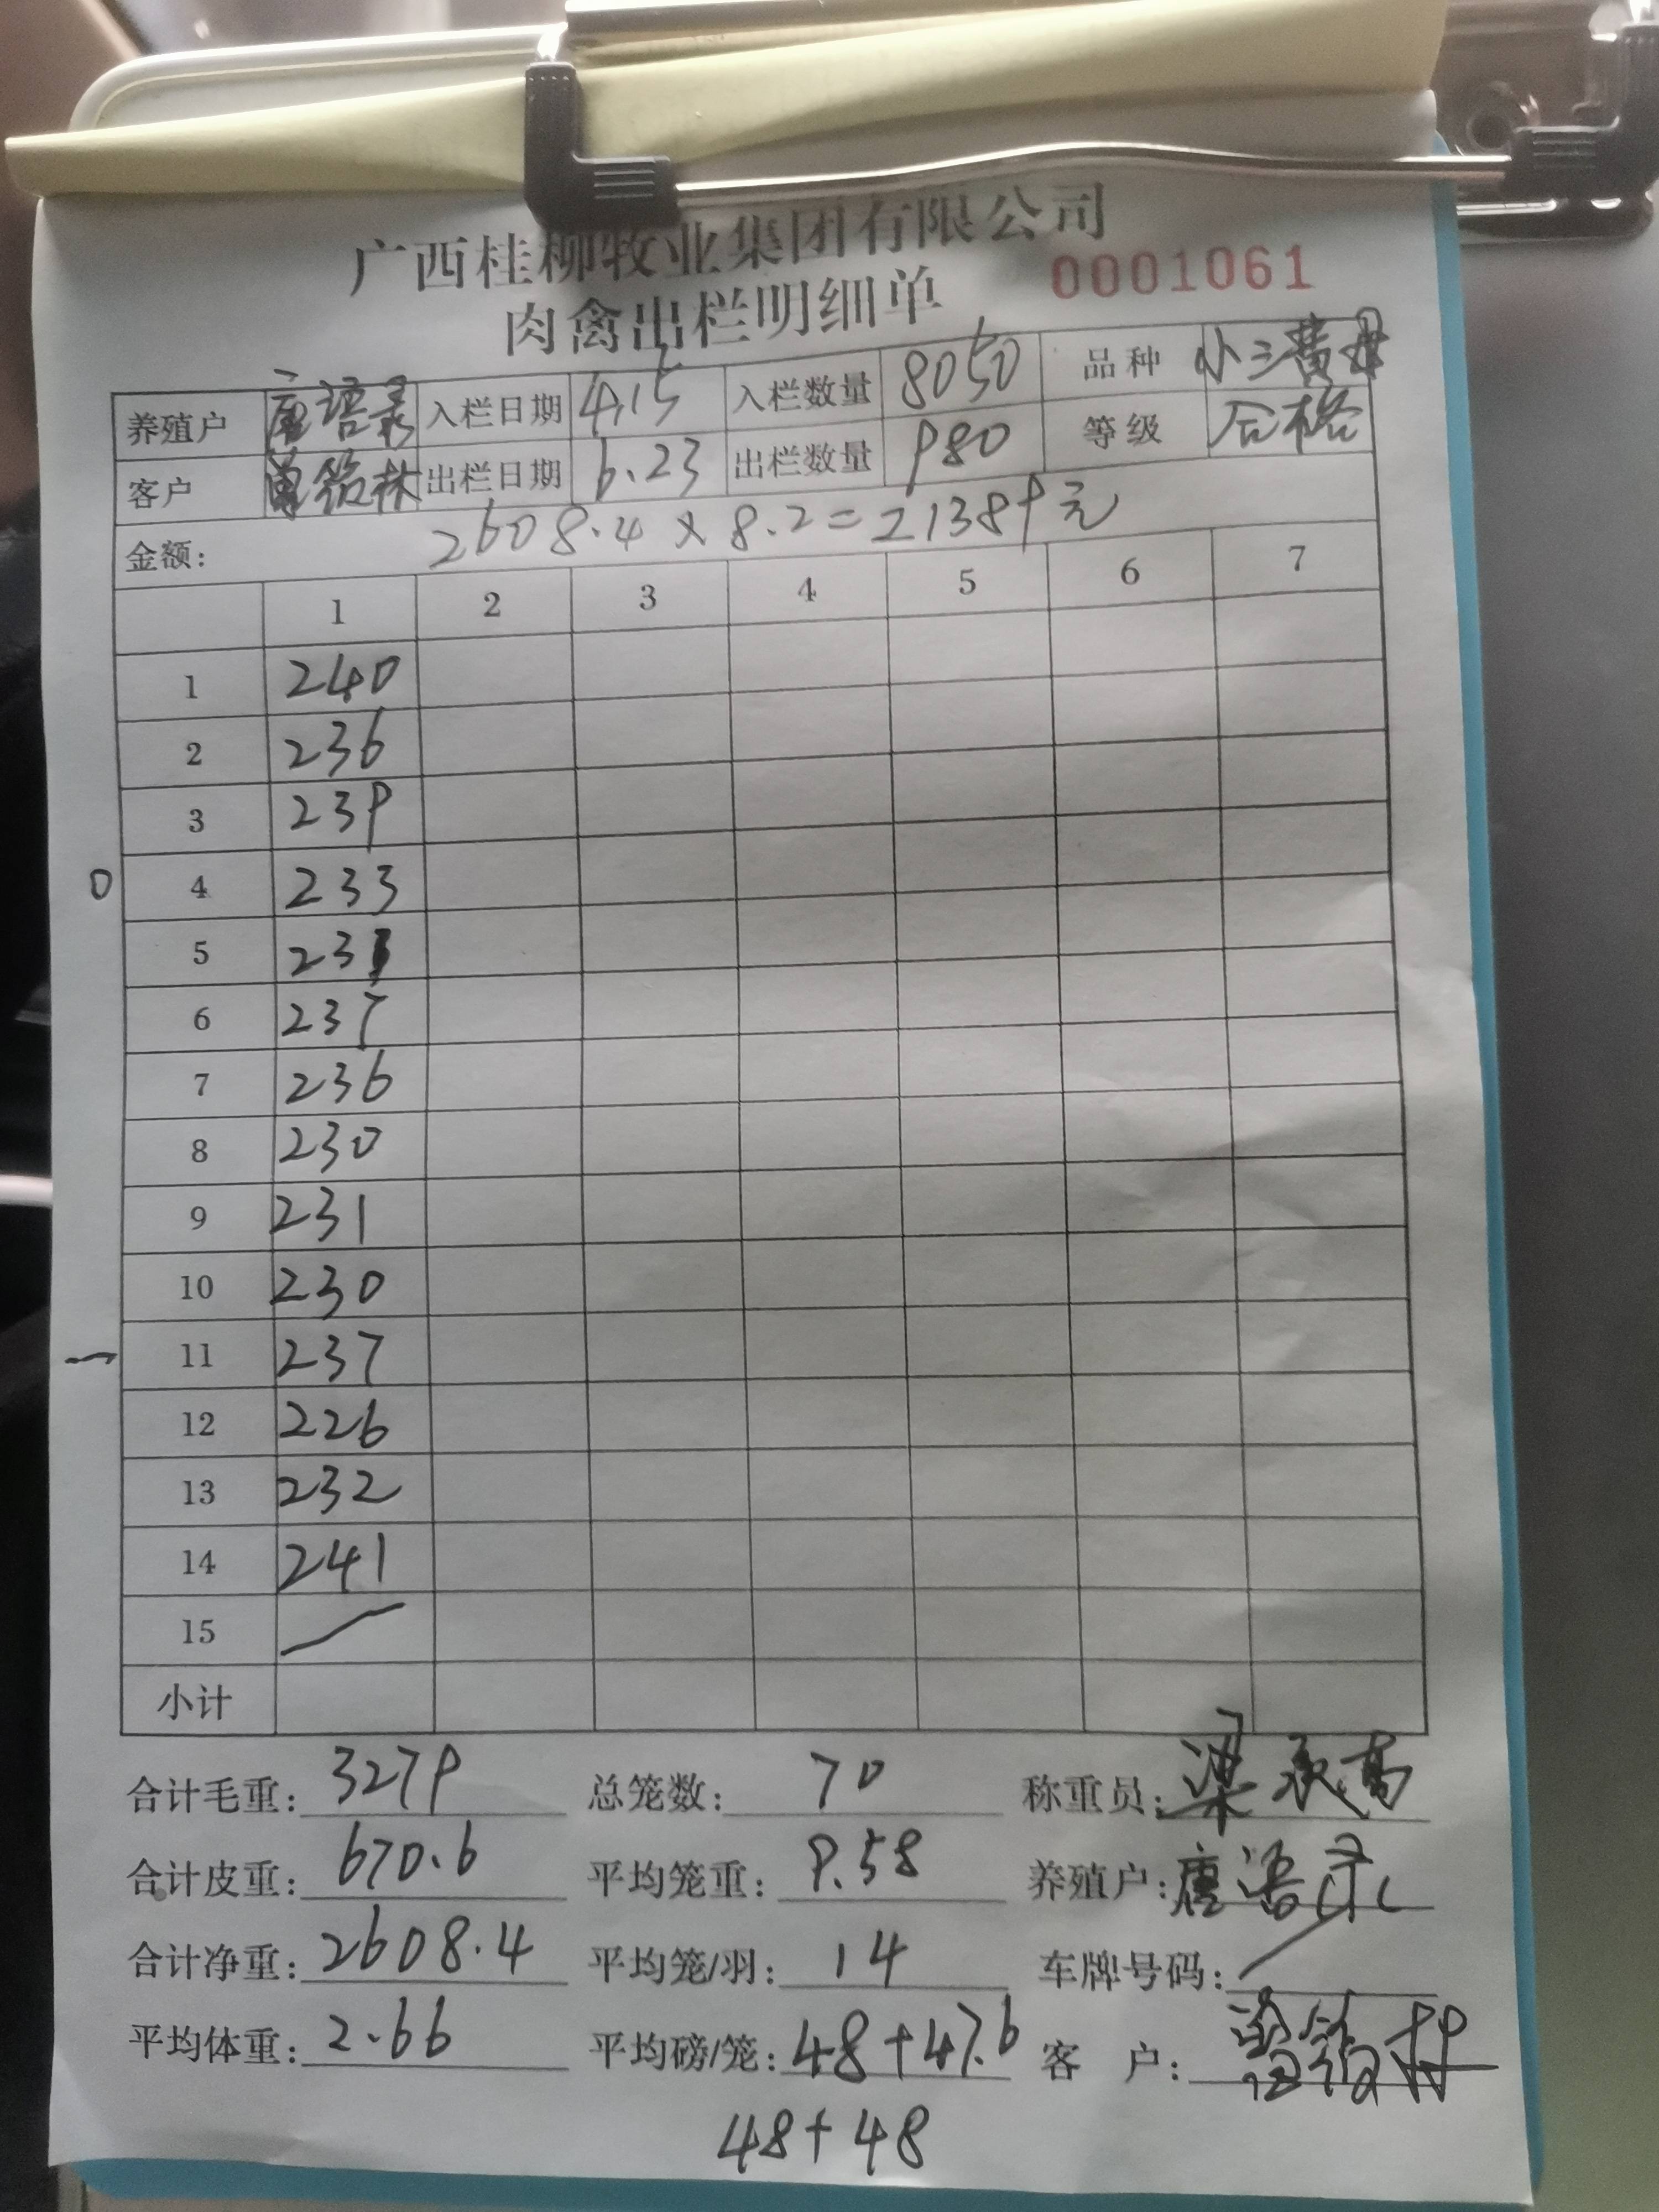 广西桂柳牧业集团有限公司
肉禽出栏明细单 0001061
养殖户 唐 入栏日期 4.15 入栏数量 8050 品种 小三黄母
客户 出栏日期 6.23 出栏数量 980 等级 合格
金额: 2608.4 × 8.2 = 21389元
1 2 3 4 5 6 7
1 240
2 236
3 239
0 4 233
5 231
6 237
7 236
8 230
9 231
10 230
一 11 237
12 226
13 232
14 241
15
小计
合计毛重: 3279 总笼数: 70 称重员: 梁
合计皮重: 670.6 平均笼重: 9.58 养殖户: 唐
合计净重: 2608.4 平均笼/羽: 14 车牌号码:
平均体重: 2.66 平均磅/笼: 48+47.6 客 户:
48+48